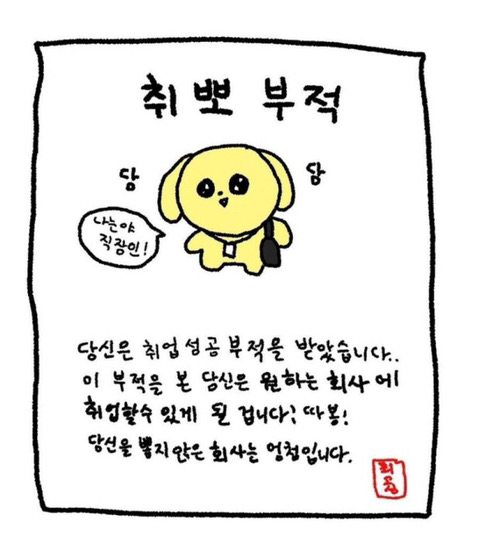 취뽀 부적
당 당
나는야
직장인!
당신은 취업 성공 부적을 받았습니다..
이 부적을 본 당신은 원하는 회사에
취업할수 있게 될 겁니다! 따봉!
당신을 뽑지않은 회사는 멍청입니다.